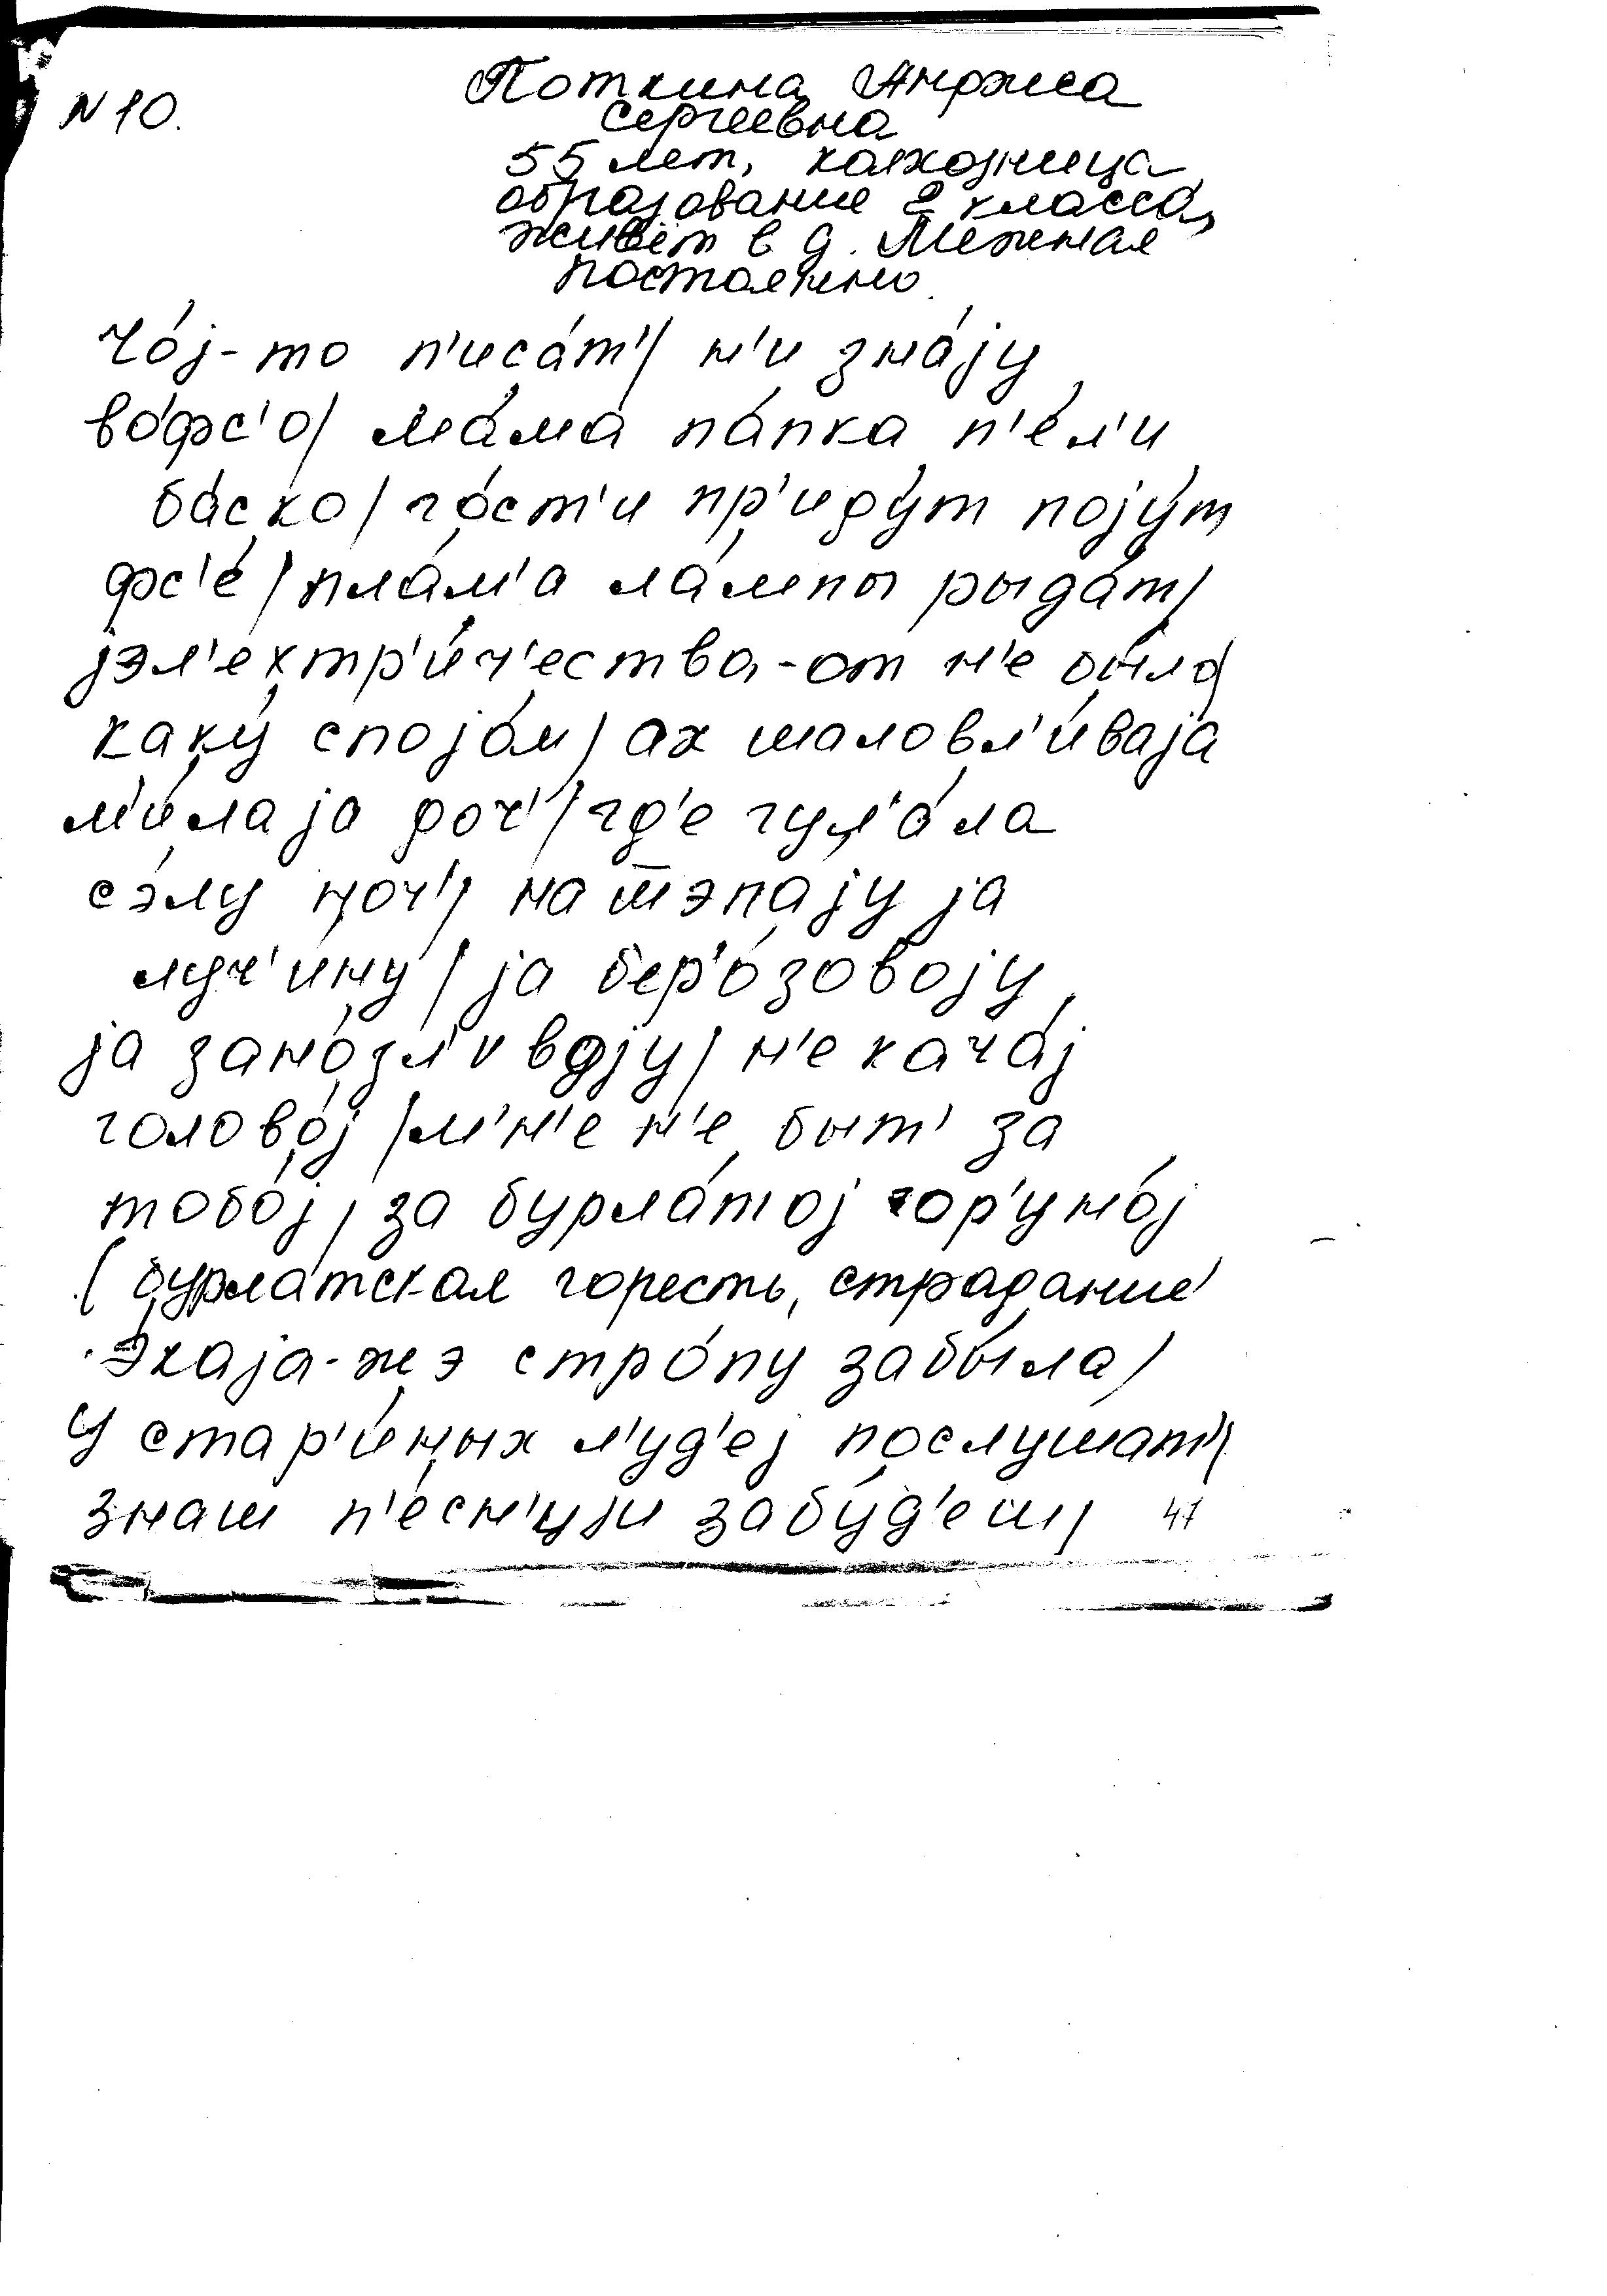 N 10.
Поткина Анфиса
Сергеевна
55 лет, колхозница
образование 2 класса,
живёт в д. Межная
постоянно.
чо́ј-то п'иса́т'/ н'и зна́ју
во́фс'о/ ма́ма па́пка п'е́л'и
ба́ско/ го́ст'и пр'иду́т појут
фс'е́/ пла́м'а ла́мпы рыда́т/
јэл'ектр'и́ч'ества-от н'е было/
каку́ спојо́м/ ах шаловл'и́ваја
м'и́лаја доч'/ гд'е гул'а́ла
сэ́лу ноч'/ на шэпа́ју ја
луч'и́ну/ ја бер'о́зовоју
ја зано́зл'ивоју/ н'е кача́ј
голово́ј/ м'н'е н'е быт' за
тобо́ј/ за бурла́тој гор'уно́ј
(бурла́тская горесть, страдание
э́каја-жэ стро́пу забы́ла/
у стар'и́ных л'уд'еј послушат'/
знаш п'е́сн'у забу́д'еш/ 41